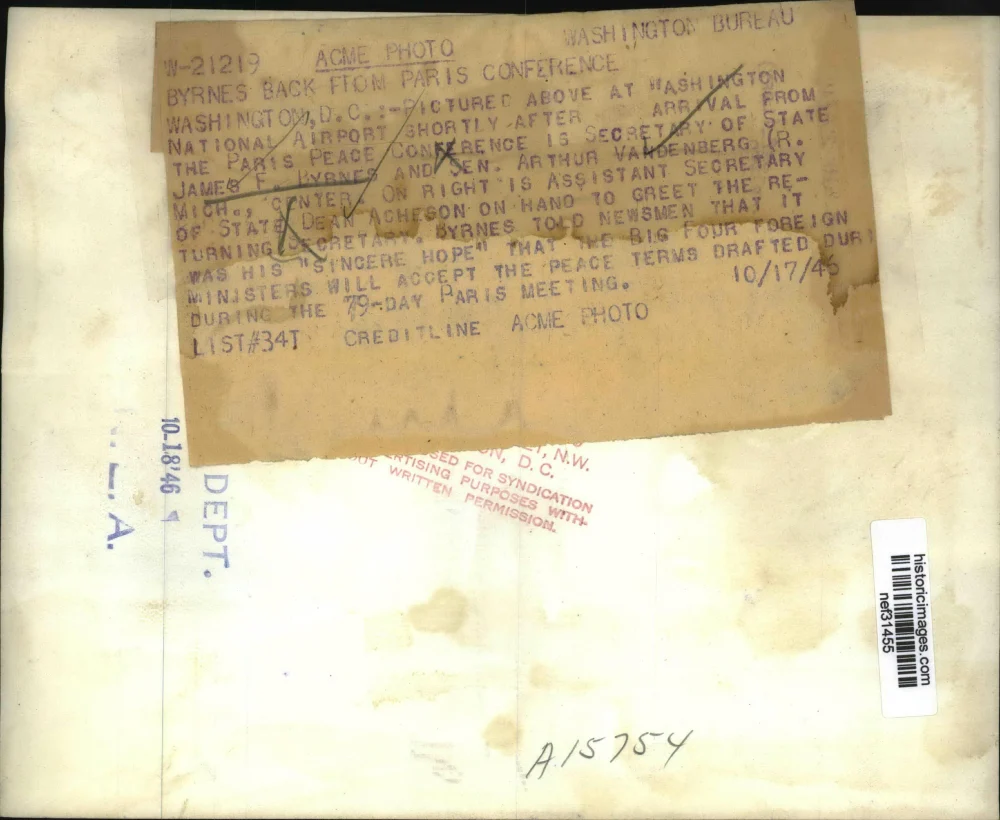 W-21219 ACME PHOTO WASHINGTON BUREAU
BYRNES BACK FTOM PARIS CONFERENCE
WASHINGTON, D.C.:-PICTURED ABOVE AT WASHINGTON
NATIONAL AIRPORT SHORTLY AFTER ARRIVAL FROM
THE PARIS PEACE CONFERENCE IS SECRETARY OF STATE
JAMES F. BYRNES AND SEN. ARTHUR VANDENBERG (R.
MICH., CENTER. ON RIGHT IS ASSISTANT SECRETARY
OF STATE DEAN ACHESON ON HAND TO GREET THE RE-
TURNING SECRETARY. BYRNES TOLD NEWSMEN THAT IT
WAS HIS "SINCERE HOPE" THAT THE BIG FOUR FOREIGN
MINISTERS WILL ACCEPT THE PEACE TERMS DRAFTED DURI
DURING THE 79-DAY PARIS MEETING. 10/17/46
LIST#34T CREDITLINE ACME PHOTO
N.W.
ON, D. C.
SED FOR SYNDICATION
ERTISING PURPOSES WITH-
OUT WRITTEN PERMISSION.
DEPT.
10-18'46
E. A.
historicimages.com
nef31455
A15754